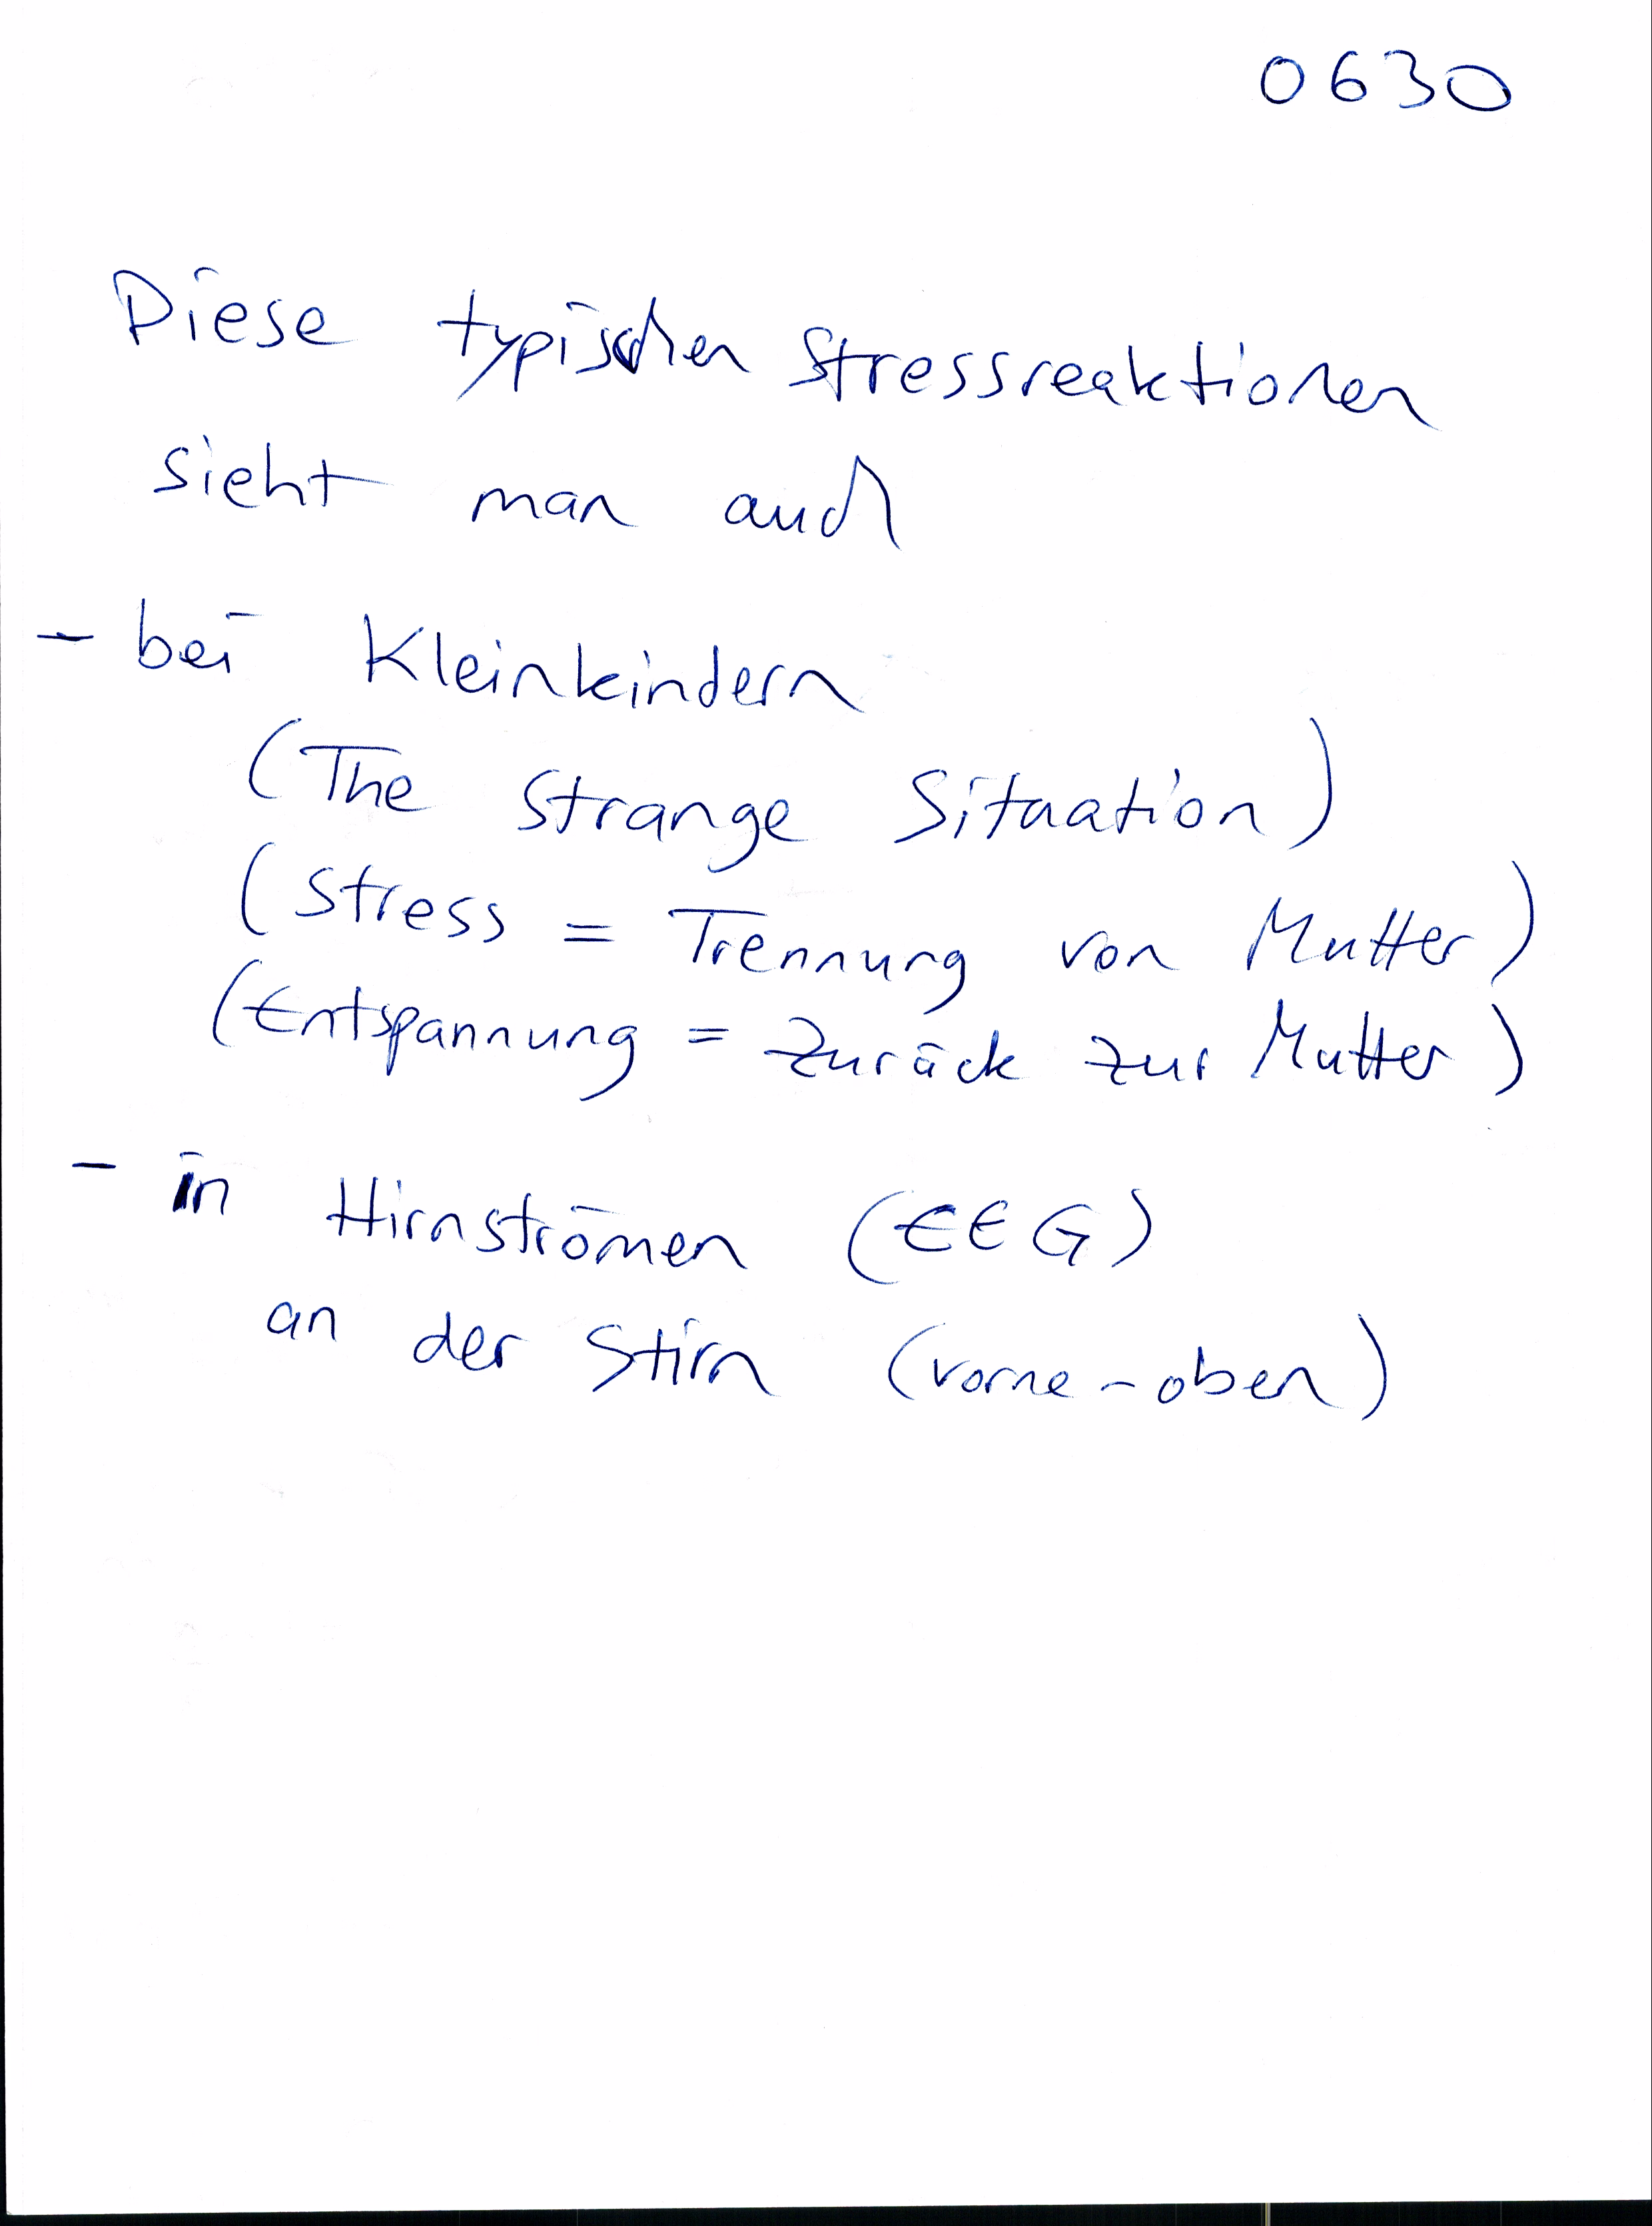 0630
Diese typischen Stressreaktionen
sieht man auch
- bei Kleinkindern
(The Strange Situation)
(Stress = Trennung von Mutter)
(Entspannung = Zurück zur Mutter)
- in Hirnströmen (EEG)
an der Stirn (vorne-oben)